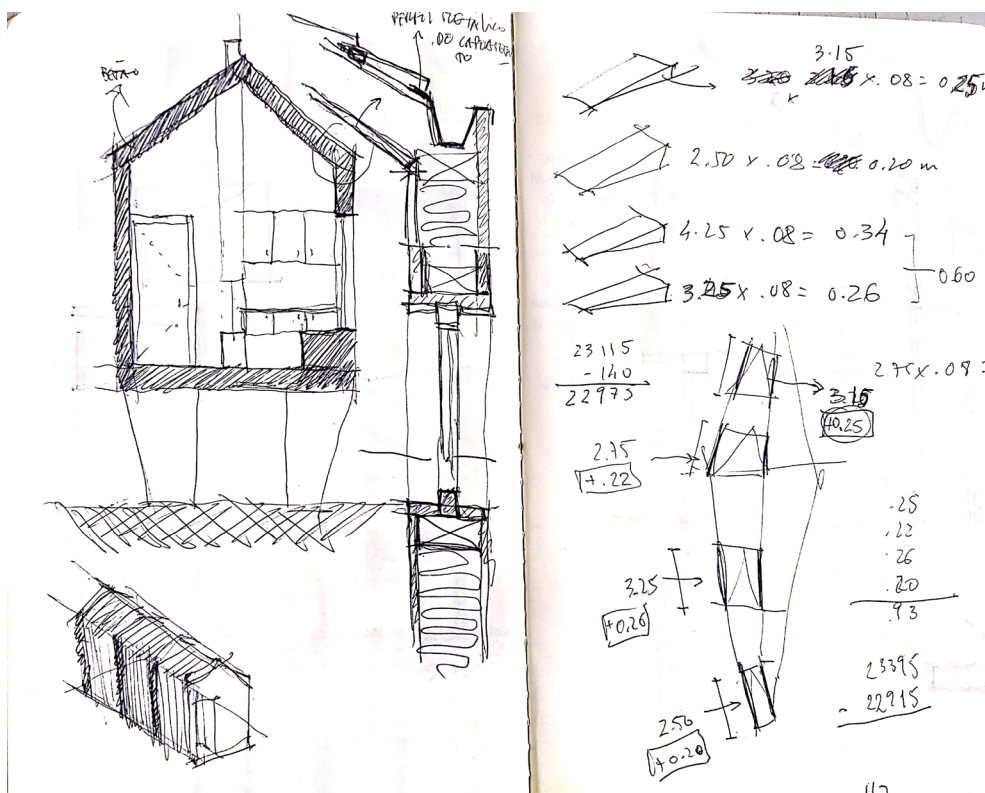 BETÃO
PERFIL METÁLICO
DE CAPEAMEN
TO
3.15
x .08 = 0.25
2.50 x .08 = 0.20 m
4.25 x .08 = 0.34
0.60
3.25 x .08 = 0.26
23115
- 140
22975
2.75 x .08 =
3.15
+0.25
2.75
+.22
3.25
+0.26
2.50
+0.20
.25
.22
.26
.20
.93
23395
- 22915